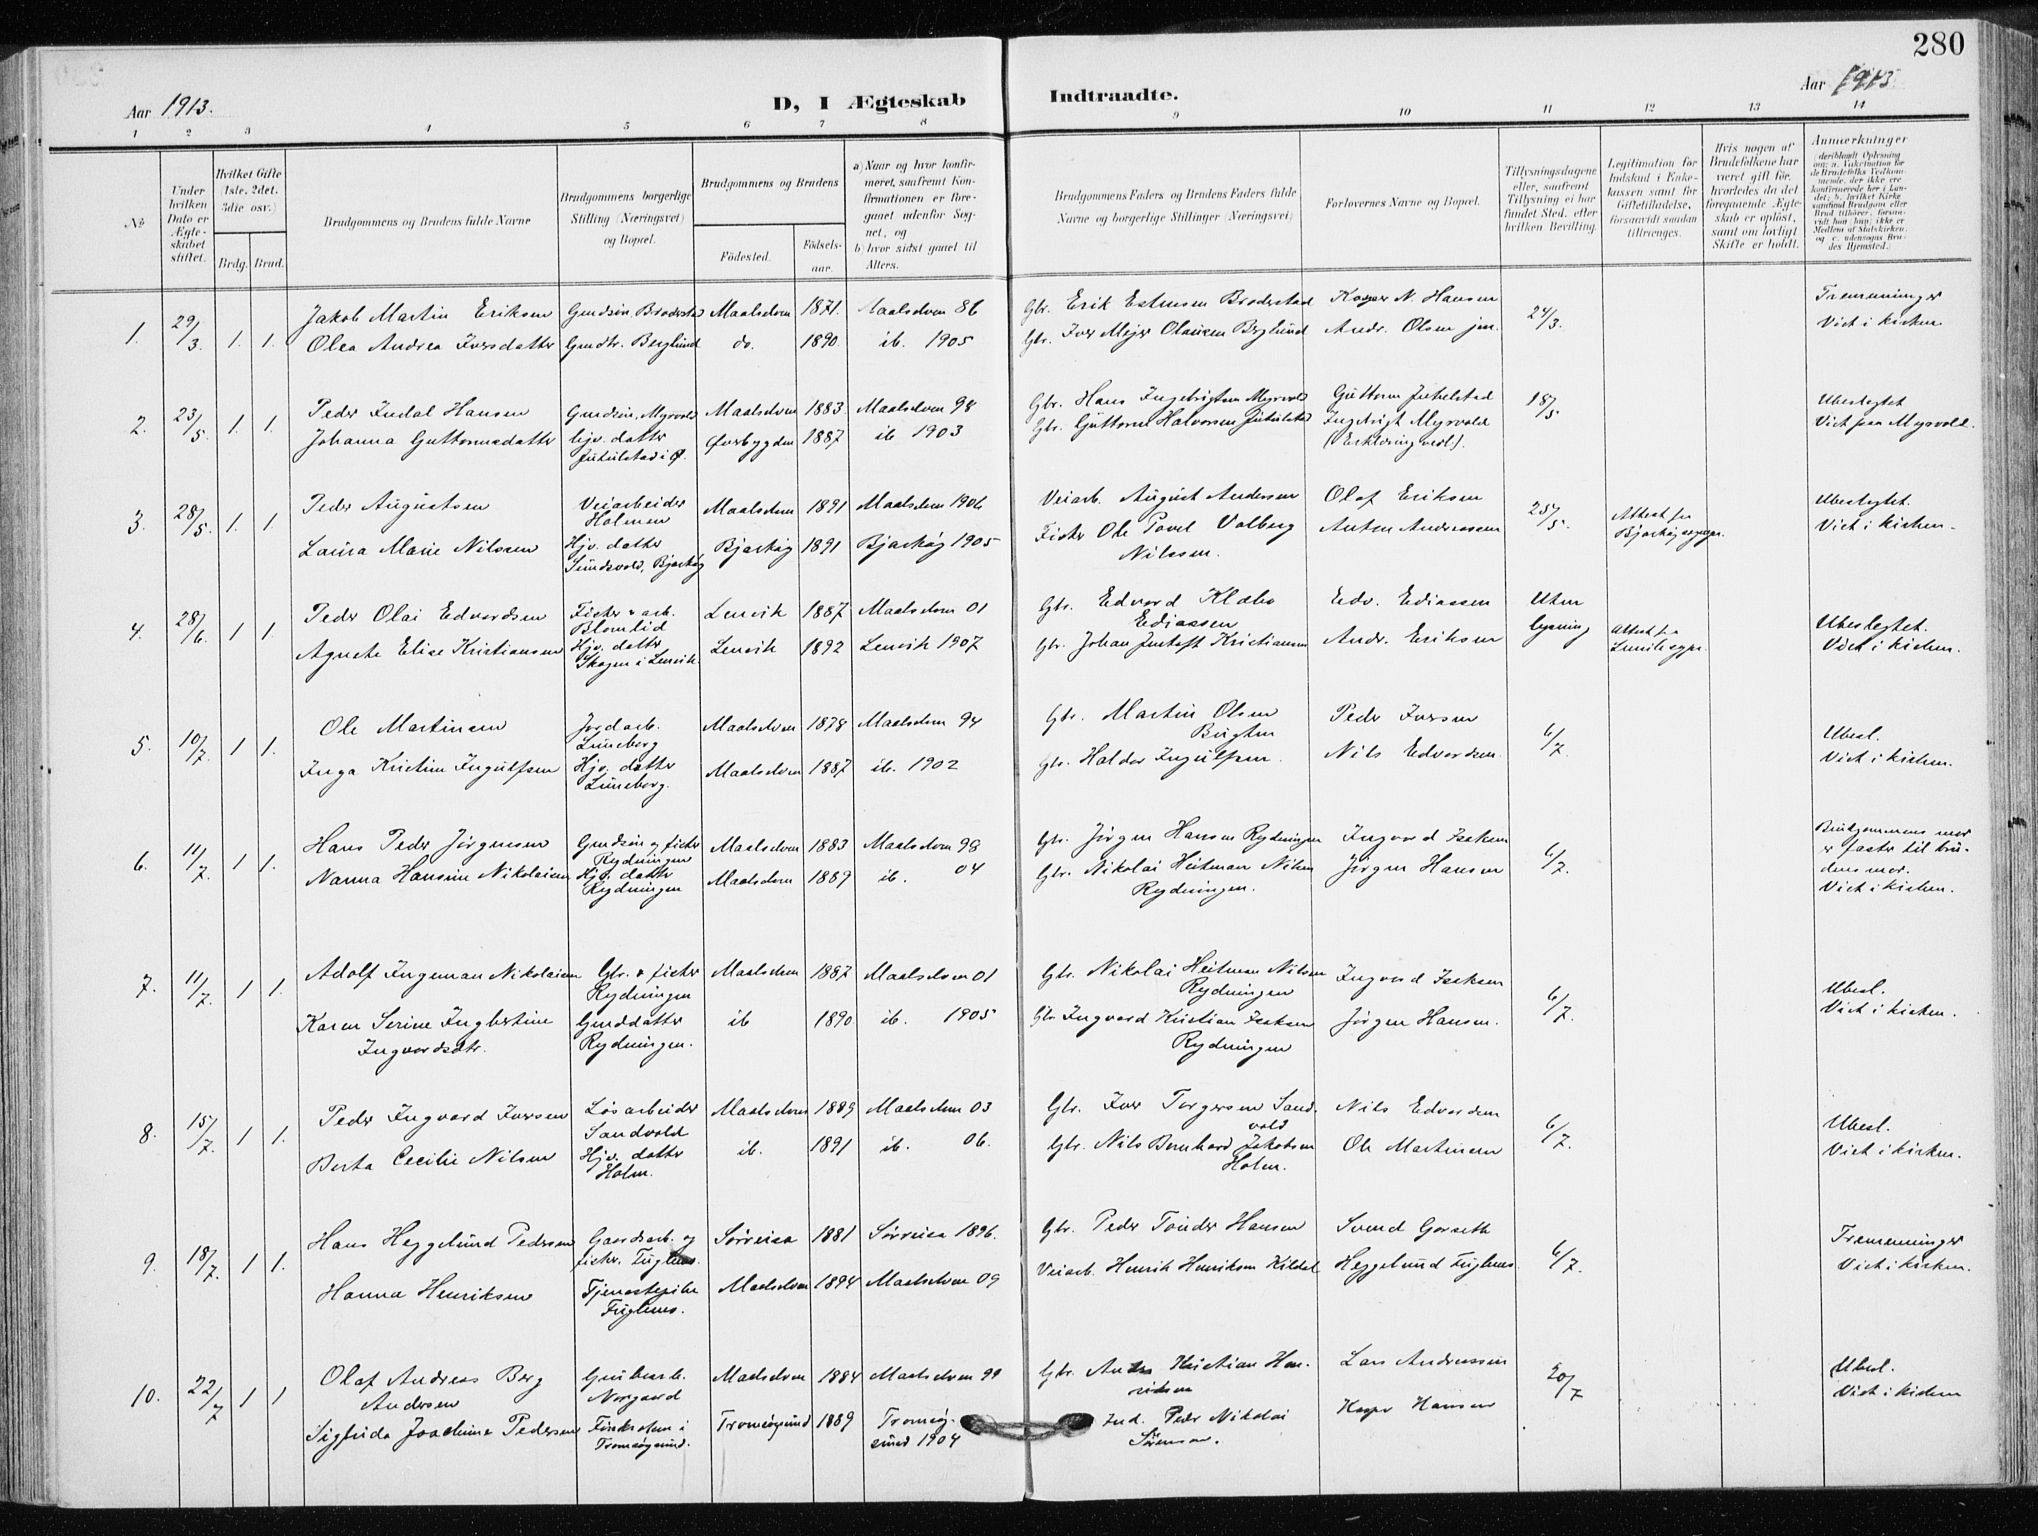 280
Aar 1913.
D, I Ægteskab Indtraadte.
Aar 1913
1 2 3 4 5 6 7 8 9 10 11 12 13 14
No
Under hvilken Dato er Ægteskabet stiftet.
Hvilket Gifte (1ste, 2det, 3die osv.)
Brdg. Brud.
Brudgommens og Brudens fulde Navne
Brudgommens borgerlige Stilling (Næringsvei) og Bopæl.
Brudgommens og Brudens
Födested.
Födselsaar.
a) Naar og hvor konfirmeret, saafremt Konfirmationen er foregaaet udenfor Sognet, og
b) hvor sidst gaaet til Alters.
Brudgommens Faders og Brudens Faders fulde Navne og borgerlige Stillinger (Næringsvei)
Forlovernes Navne og Bopæl.
Tillysningsdagene eller, saafremt Tillysning ei har fundet Sted, efter hvilken Bevilling.
Legitimation for Indskud i Enkekassen samt for Giftetilladelse, forsaavidt saadan tiltrænges.
Hvis nogen af Brudefolkene har været gift før, hvorledes da det foregaaende Ægteskab er opløst, samt om lovligt Skifte er holdt.
Anmerkninger
deriblandt Oplysning om: a. Vakcination for de Brudefolks Vedkommende, der ikke ere konfirmerede her i Landet; b. hvilket Kirkesamfund Brudgom eller Brud tilhører, forsaavidt han (hun) ikke er Medlem af Statskirken, og c. udensogns Brudes Hjemsted.
1. 29/3. 1. 1. Jakob Martin Eriksen Gmdsøn, Brodersta Maalselven 1871. Maalselven 86 Gbr. Erik Estensen Broderstad Kasper N. Hansen 24/3. Tremenninger
Olea Andrea Iversdatter Gmdtr. Berglund do. 1890. ib. 1905 Gbr. Iver Mejer Olausen Berglund Andr. Olsen jun. Viet i kirken
2. 23/5. 1. 1. Peder Indal Hansen Gmdsøn, Myrvold Maalselven 1883. Maalselven 98 Gbr. Hans Ingebrigtsen Myrvold Guttorm Jutulstad 18/5 Ubeslegtet
Johanna Guttormsdatter Hjv. datter Øverbygden 1887 ib 1903 Gbr. Guttorm Halvorsen Jutulstad Ingebrigt Myrvold Viet paa Myrvold.
Jutulstad i Ø. (Erklæring vedl.).
3. 28/5. 1. 1. Peder Augustsen Veiarbeider Maalselven 1891 Maalselven 1906 Veiarb. August Andersen Olaf Eriksen 25/5. Attest fra Ubeslegtet.
Holmen
Laura Marie Nilssen Hjv. datter Bjarkøy 1891 Bjarkøy 1905 Fisker Ole Povel Valberg Anton Andreassen Bjarkøy sogepr. Viet i kirken.
Sundsvold, Bjarkøy Nilssen.
4. 28/6. 1 1. Peder Olai Edvardsen Fisker & arb. Lenvik 1887 Maalselven 01 Gbr. Edvard Klæbo Edv. Ediassen Uten Ubeslegtet.
Blomlid Ediassen lysning Attest fra
Agnete Elise Kristiansen Hjv. datter Lenvik 1892 Lenvik 1907 Gbr. Johan Jentoft Kristiansen Andr. Eriksen Viet i kirken.
Skogen i Lenvik.
5. 10/7. 1 1. Ole Martinsen Jordarb. Maalselven 1878 Maalselven 94 Gbr. Martin Olsen Peder Iversen 6/7. Ubesl.
Luneborg Bugten
Inga Kristine Ingulfsen Hjv. datter Maalselven 1887 ib. 1902 Gbr. Haldor Ingulfsen. Nils Edvardsen. Viet i kirken.
Luneborg.
6. 11/7. 1 1. Hans Peder Jørgensen Gmdsøn og fisker Maalselven 1883 Maalselven 98 Gbr. Jørgen Hansen Rydningen Ingvard Isaksen 6/7. Brudgommens mor
Rydningen er faster til bru-
Nanna Hansine Nikolaisen Hjv. datter Maalselven 1889 ib. 04 Gbr. Nikolai Heitman Nilsen Jørgen Hansen dens mor.
Rydningen Rydningen. Viet i kirken.
7. 11/7. 1 1. Adolf Ingeman Nikolaisen Gbr. & fisker Maalselven 1887 Maalselven 01 Gbr. Nikolai Heitman Nilsen Ingvard Isaksen 6/7. Ubesl.
Rydningen Rydningen
Karen Serine Ingbertine Gmddatter ib 1890 ib. 1905 Gbr Ingvard Kristian Isaksen Jørgen Hansen. Viet i kirken.
Ingvardsdtr. Rydningen. Rydningen
8. 15/7. 1 1. Peder Ingvard Iversen Løsarbeider Maalselven 1889 Maalselven 03 Gbr. Iver Torgersen Sand- Nils Edvardsen 6/7. Ubesl.
Sandvold vold
Berta Cecilie Nilsen Hjv. datter ib. 1891 ib. 06. Gbr. Nils Bernhard Jakobsen Ole Martinsen Viet i kirken.
Holm. Holm.
9. 18/7. 1 1. Hans Heggelund Pedersen Gaardsarb. og Sørreisa 1881 Sørreisa 1896. Gbr. Peder Tønder Hansen Svend Gorseth 6/7. Tremenninger
fisker. Fuglenes.
Hanna Henriksen Tjenestepike Maalselven 1894 Maalselven 09 Veiarb. Henrik Henriksen Kildal Heggelund Fuglenes Viet i kirken.
Fuglenes.
10. 22/7 1 1 Olaf Andreas Berg Grubearb. Maalselven 1884 Maalselven 99 Gbr. Kristian Hen- Lars Andreassen 20/7 Ubesl.
Andersen Norgaard riksen Viet i kirken
Sigfrida Joachime Pedersen Finkroken i Tromsøsund 1889 Tromsø- Ind. Peder Nikolai Kasper Hansen
Tromsøsund. sund 1904 Sørensen.